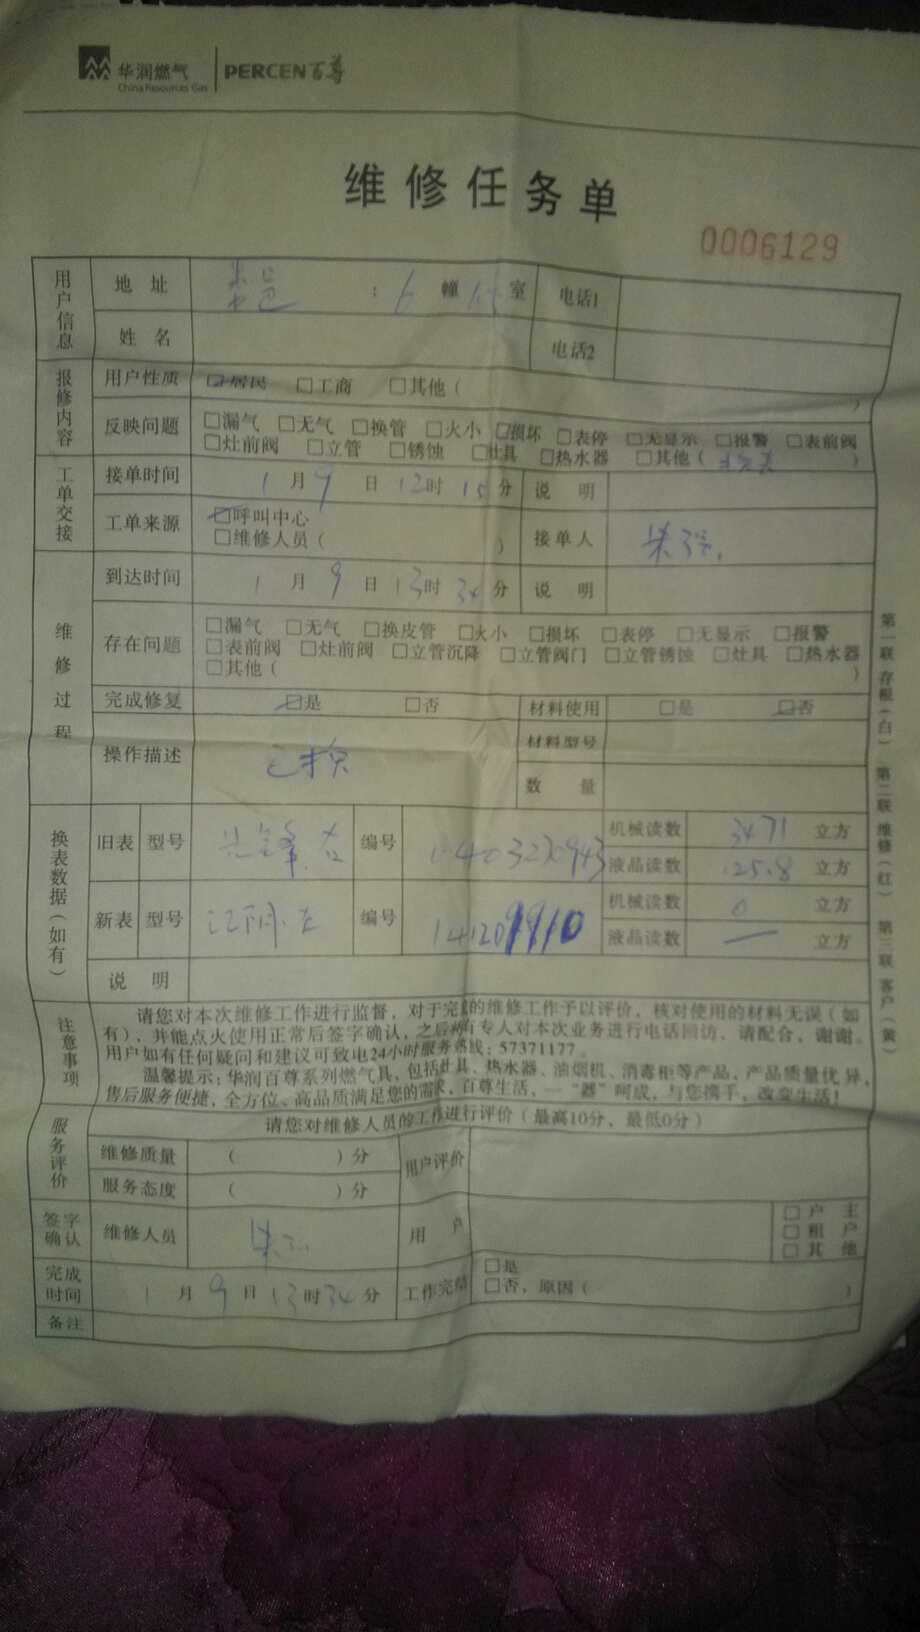 华润燃气 PERCEN百尊
China Resources Gas
维修任务单
0006129
用户信息 地址 : 6 幢 室 电话1
姓名 电话2
报修内容 用户性质 ☑居民 □工商 □其他( )
反映问题 □漏气 □无气 □换管 □火小 □损坏 □表停 □无显示 □报警 □表前阀
□灶前阀 □立管 □锈蚀 □灶具 □热水器 □其他( )
工单交接 接单时间 1月9日12时15分 说明
工单来源 ☑呼叫中心
□维修人员( ) 接单人
维修过程 到达时间 1月9日13时34分 说明
存在问题 □漏气 □无气 □换皮管 □火小 □损坏 □表停 □无显示 □报警
□表前阀 □灶前阀 □立管沉降 □立管阀门 □立管锈蚀 □灶具 □热水器
□其他( )
完成修复 ☑是 □否 材料使用 □是 ☑否
操作描述 已换 材料型号
数量
换表数据(如有) 旧表 型号 编号 机械读数 3471 立方
液晶读数 125.8 立方
新表 型号 编号 141209910 机械读数 0 立方
液晶读数 — 立方
说明
注意事项 请您对本次维修工作进行监督，对于完成的维修工作予以评价，核对使用的材料无误（如
有），并能点火使用正常后签字确认，之后将有专人对本次业务进行电话回访，请配合，谢谢。
用户如有任何疑问和建议可致电24小时服务热线：57371177。
温馨提示：华润百尊系列燃气具，包括灶具、热水器、油烟机、消毒柜等产品，产品质量优异，
售后服务便捷，全方位、高品质满足您的需求，百尊生活，一“器”呵成，与您携手，改变生活！
服务评价 请您对维修人员的工作进行评价（最高10分，最低0分）
维修质量 ( )分 用户评价
服务态度 ( )分
签字确认 维修人员 用户 □户主
□租户
□其他
完成时间 1月9日13时34分 工作完结 □是
□否，原因( )
备注
第一联 存根(白) 第二联 维修(红) 第三联 客户(黄)